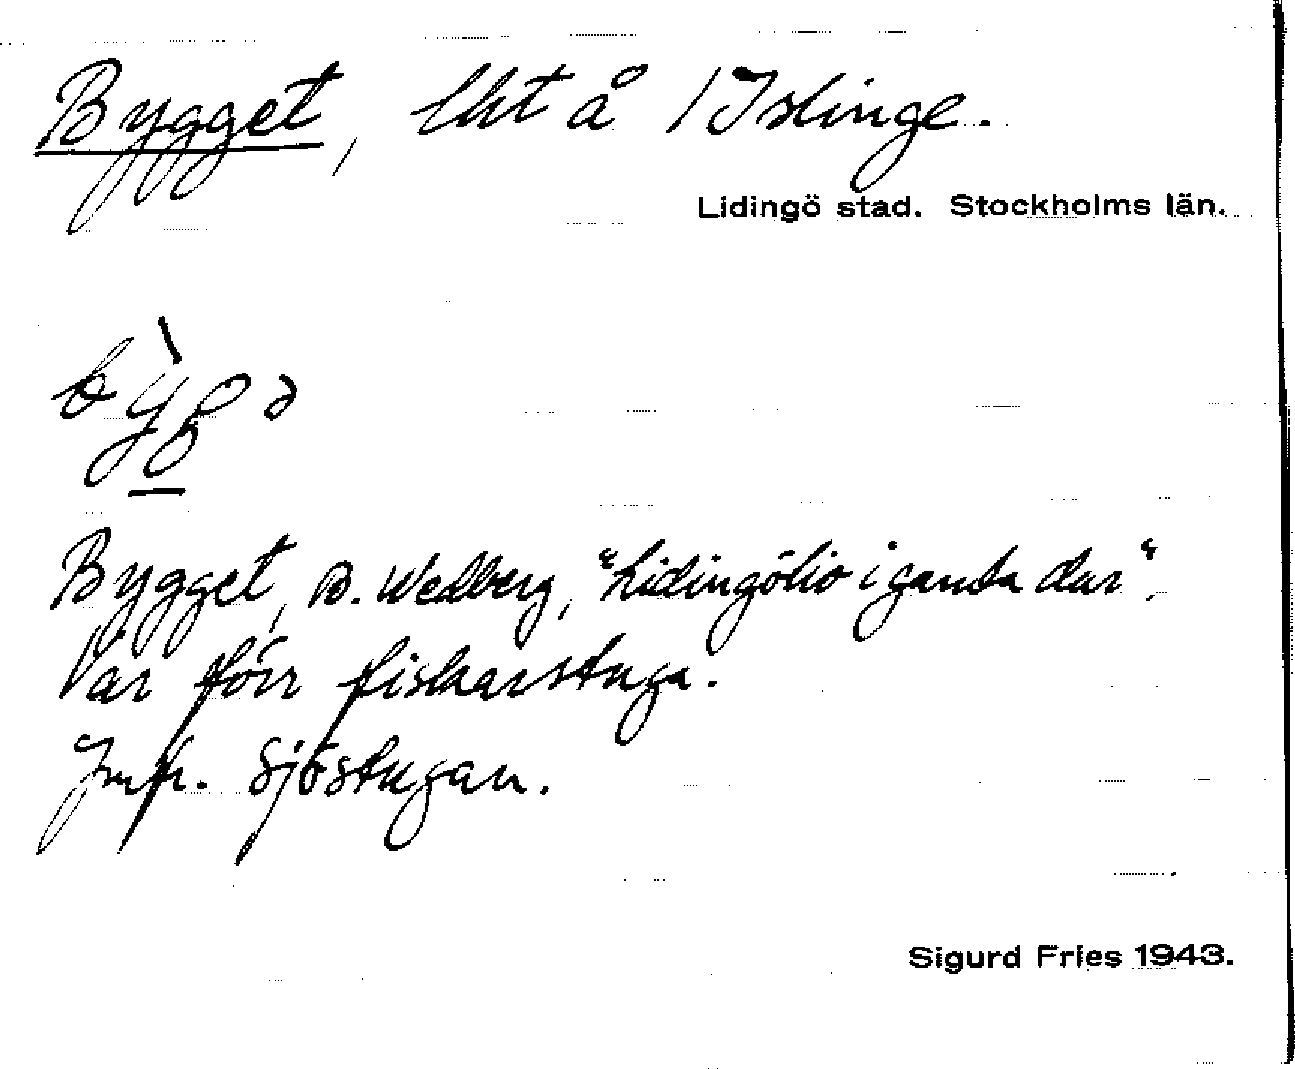 Bygget, lht å /Islinge.
Lidingö stad. Stockholms län.
bỳgə
Bygget, B. Wedberg, "Lidingöliv i gamla dar".
Var förr fiskarstuga.
Jmfr. Sjöstugan.
Sigurd Fries 1943.